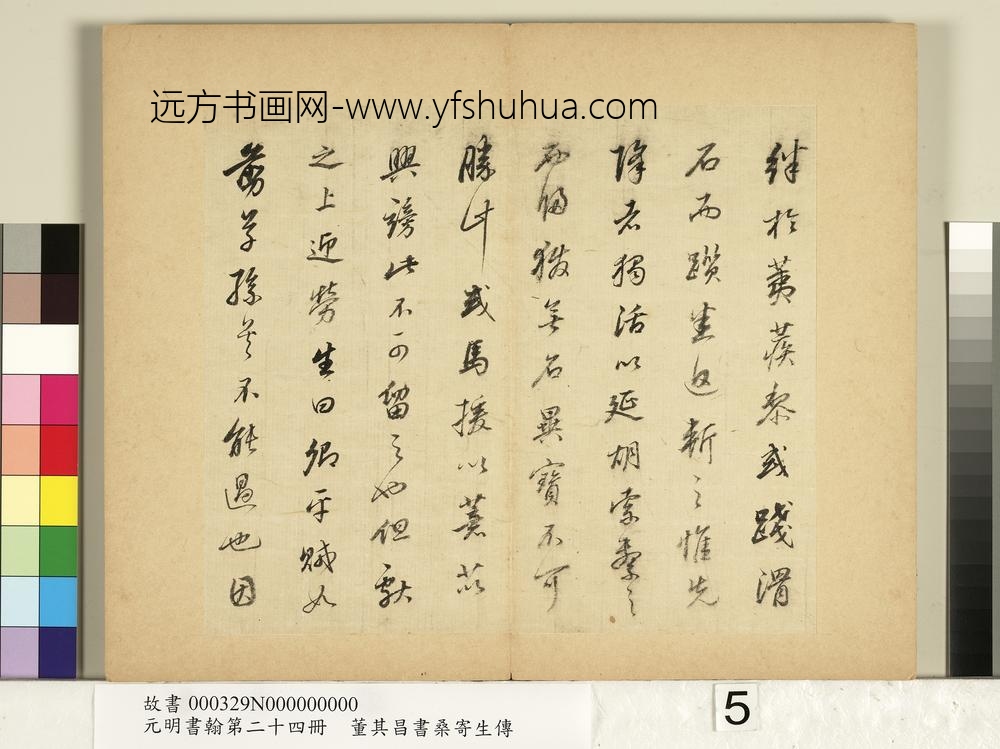 远方书画网-www.yfshuhua.com
絆於蒺藜或踐滑
石而躓悉追斬之惟先
降者獨活以延胡索繫之
而歸獲無名異寶不可
勝計或馬援以薏苡
興謗此不可留之也但獻
之上迎勞生曰卿平賊如
翦草孫吳不能過也因
故書 000329N000000000
元明書翰第二十四冊 董其昌書桑寄生傳
5